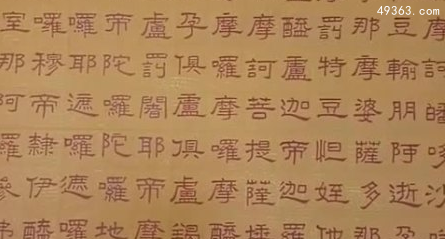 49363.com
摩訶皤哆沙
豆輸朋阿逝孕
那摩婆薩多那
罰特豆怛姪他
醯盧迦帝迦羅
摩訶菩提薩埵
摩囉摩囉摩醯
孕俱盧俱盧羯
盧罰闍耶帝摩
帝陀囉陀囉地
囉耶遮囉德囉
囉穆帝隸伊醯
室那阿囉參弗